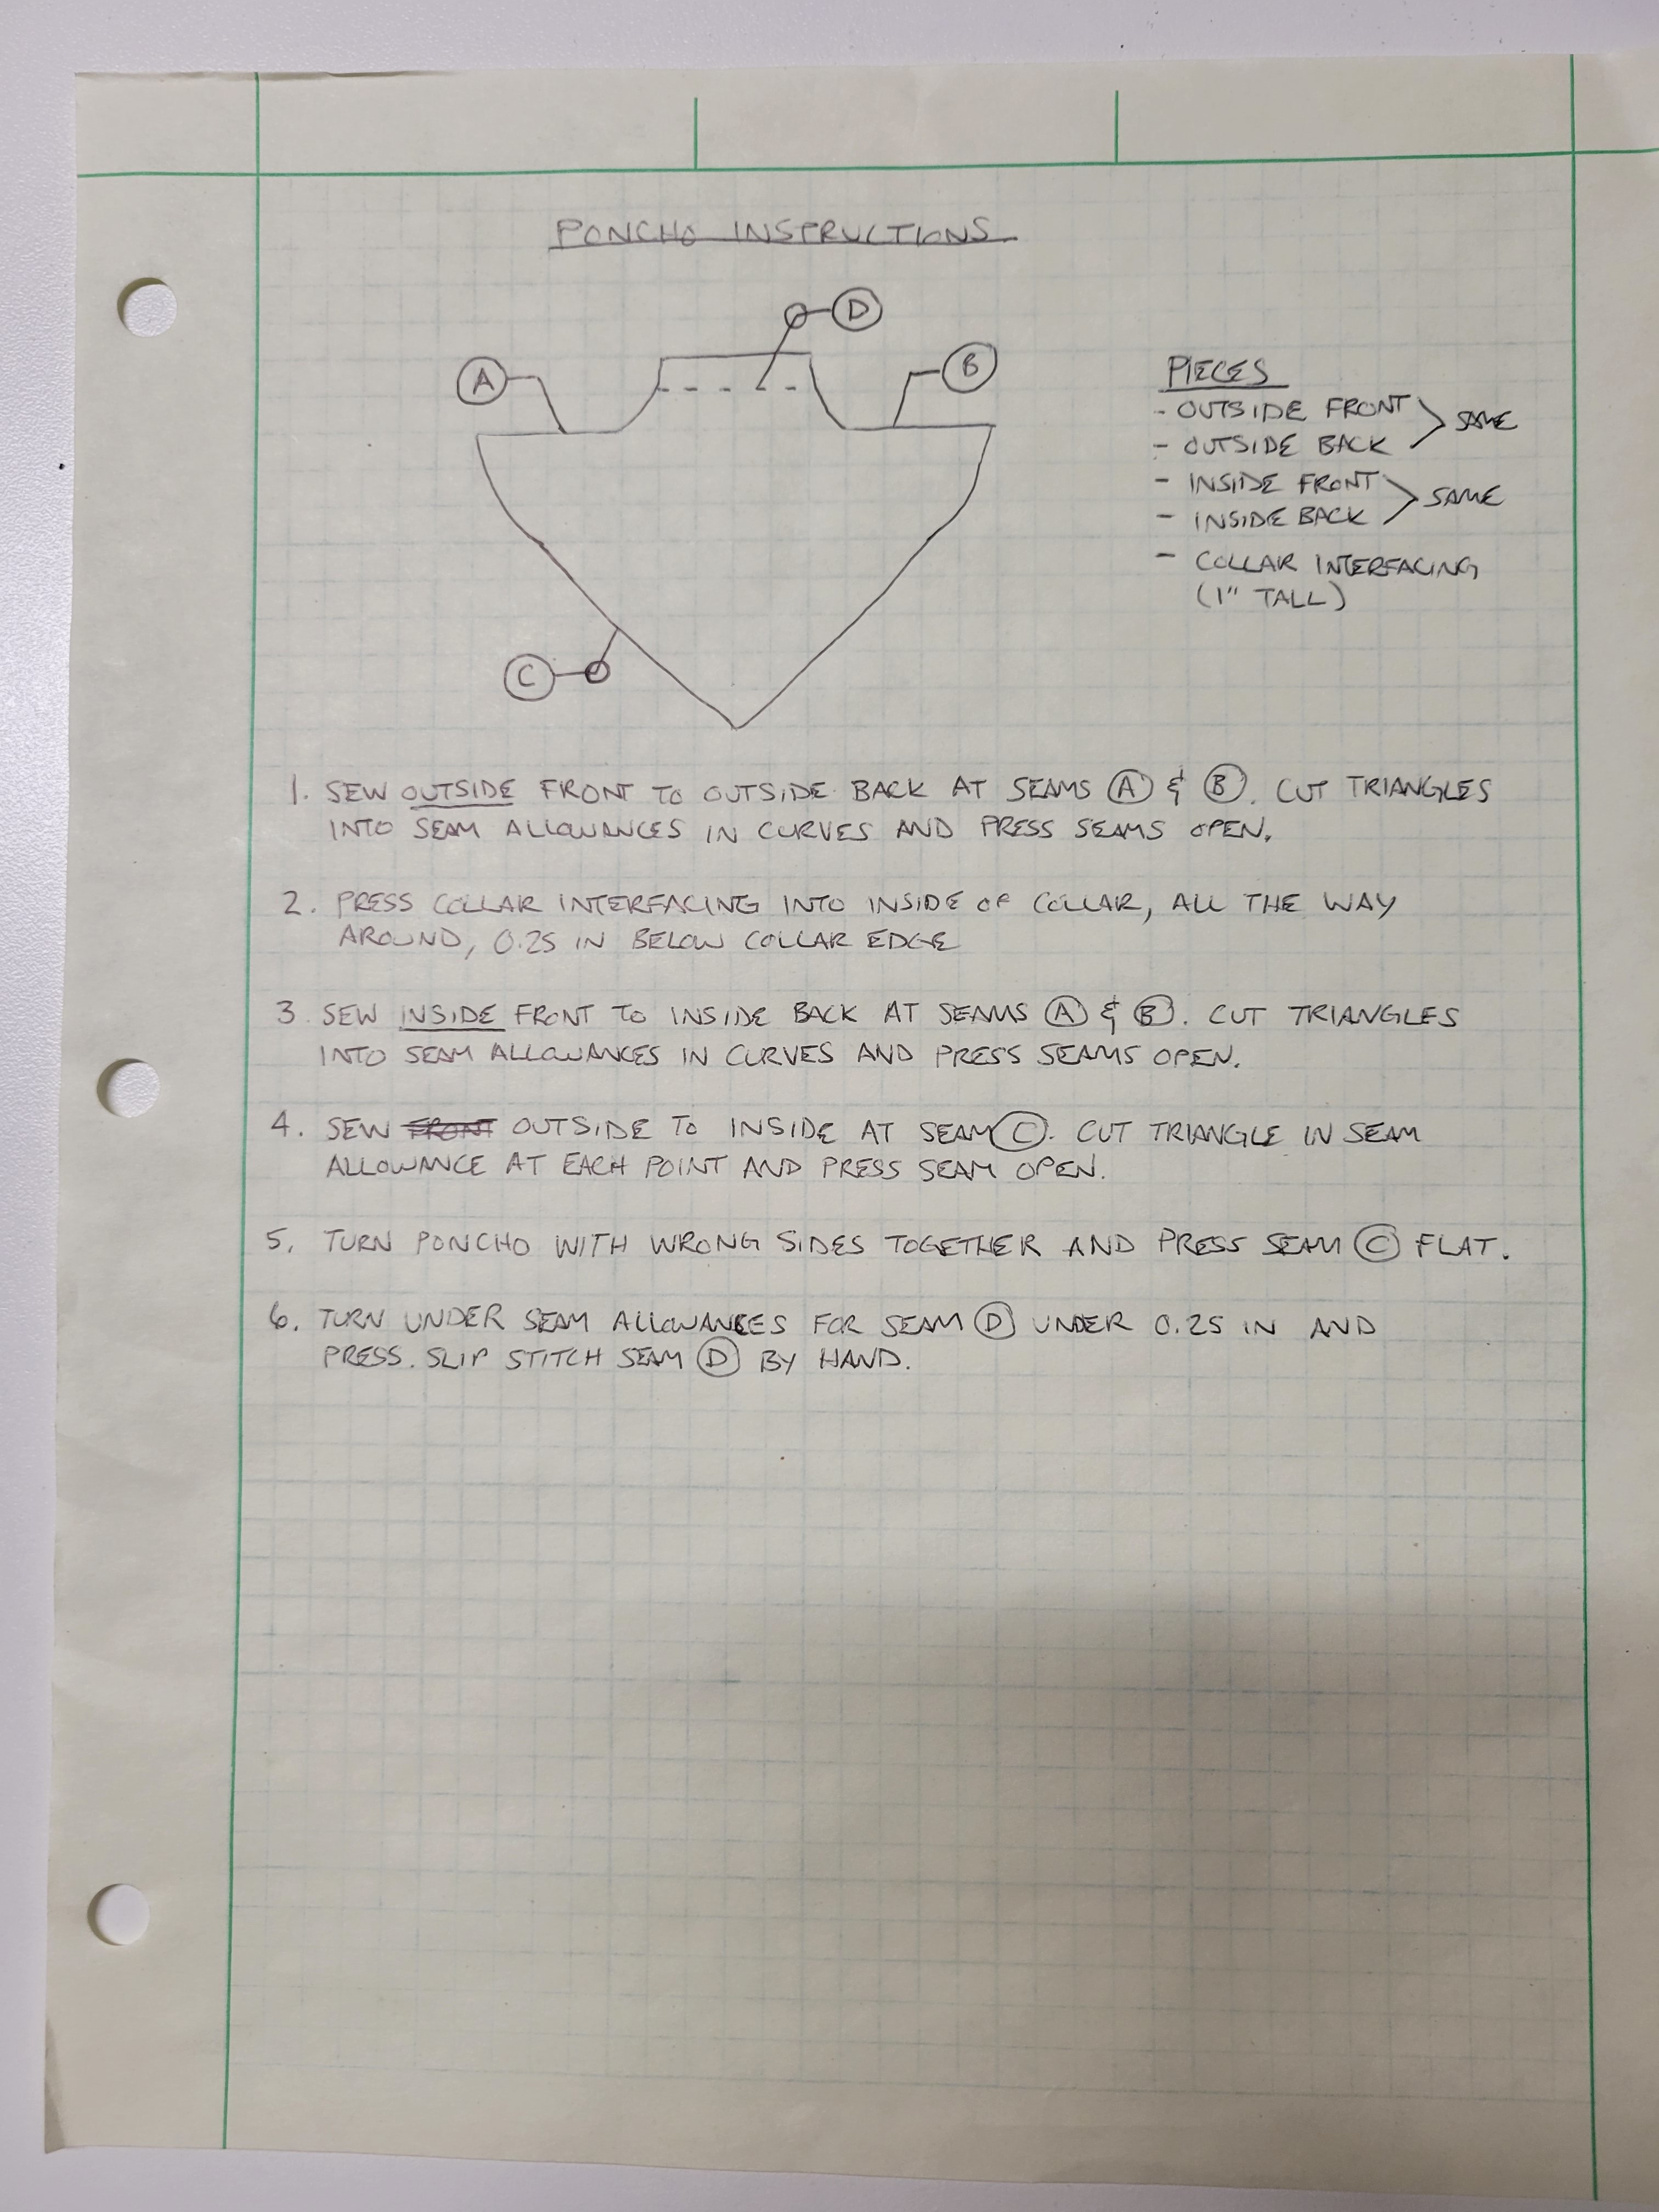 PONCHO INSTRUCTIONS
D
A
B
C
PIECES
- OUTSIDE FRONT
- OUTSIDE BACK
SAME
- INSIDE FRONT
- INSIDE BACK
SAME
- COLLAR INTERFACING
(1" TALL)
1. SEW OUTSIDE FRONT TO OUTSIDE BACK AT SEAMS A & B. CUT TRIANGLES
INTO SEAM ALLOWANCES IN CURVES AND PRESS SEAMS OPEN.
2. PRESS COLLAR INTERFACING INTO INSIDE OF COLLAR, ALL THE WAY
AROUND, 0.25 IN BELOW COLLAR EDGE
3. SEW INSIDE FRONT TO INSIDE BACK AT SEAMS A & B. CUT TRIANGLES
INTO SEAM ALLOWANCES IN CURVES AND PRESS SEAMS OPEN.
4. SEW FRONT OUTSIDE TO INSIDE AT SEAM C. CUT TRIANGLE IN SEAM
ALLOWANCE AT EACH POINT AND PRESS SEAM OPEN.
5. TURN PONCHO WITH WRONG SIDES TOGETHER AND PRESS SEAM C FLAT.
6. TURN UNDER SEAM ALLOWANCES FOR SEAM D UNDER 0.25 IN AND
PRESS. SLIP STITCH SEAM D BY HAND.